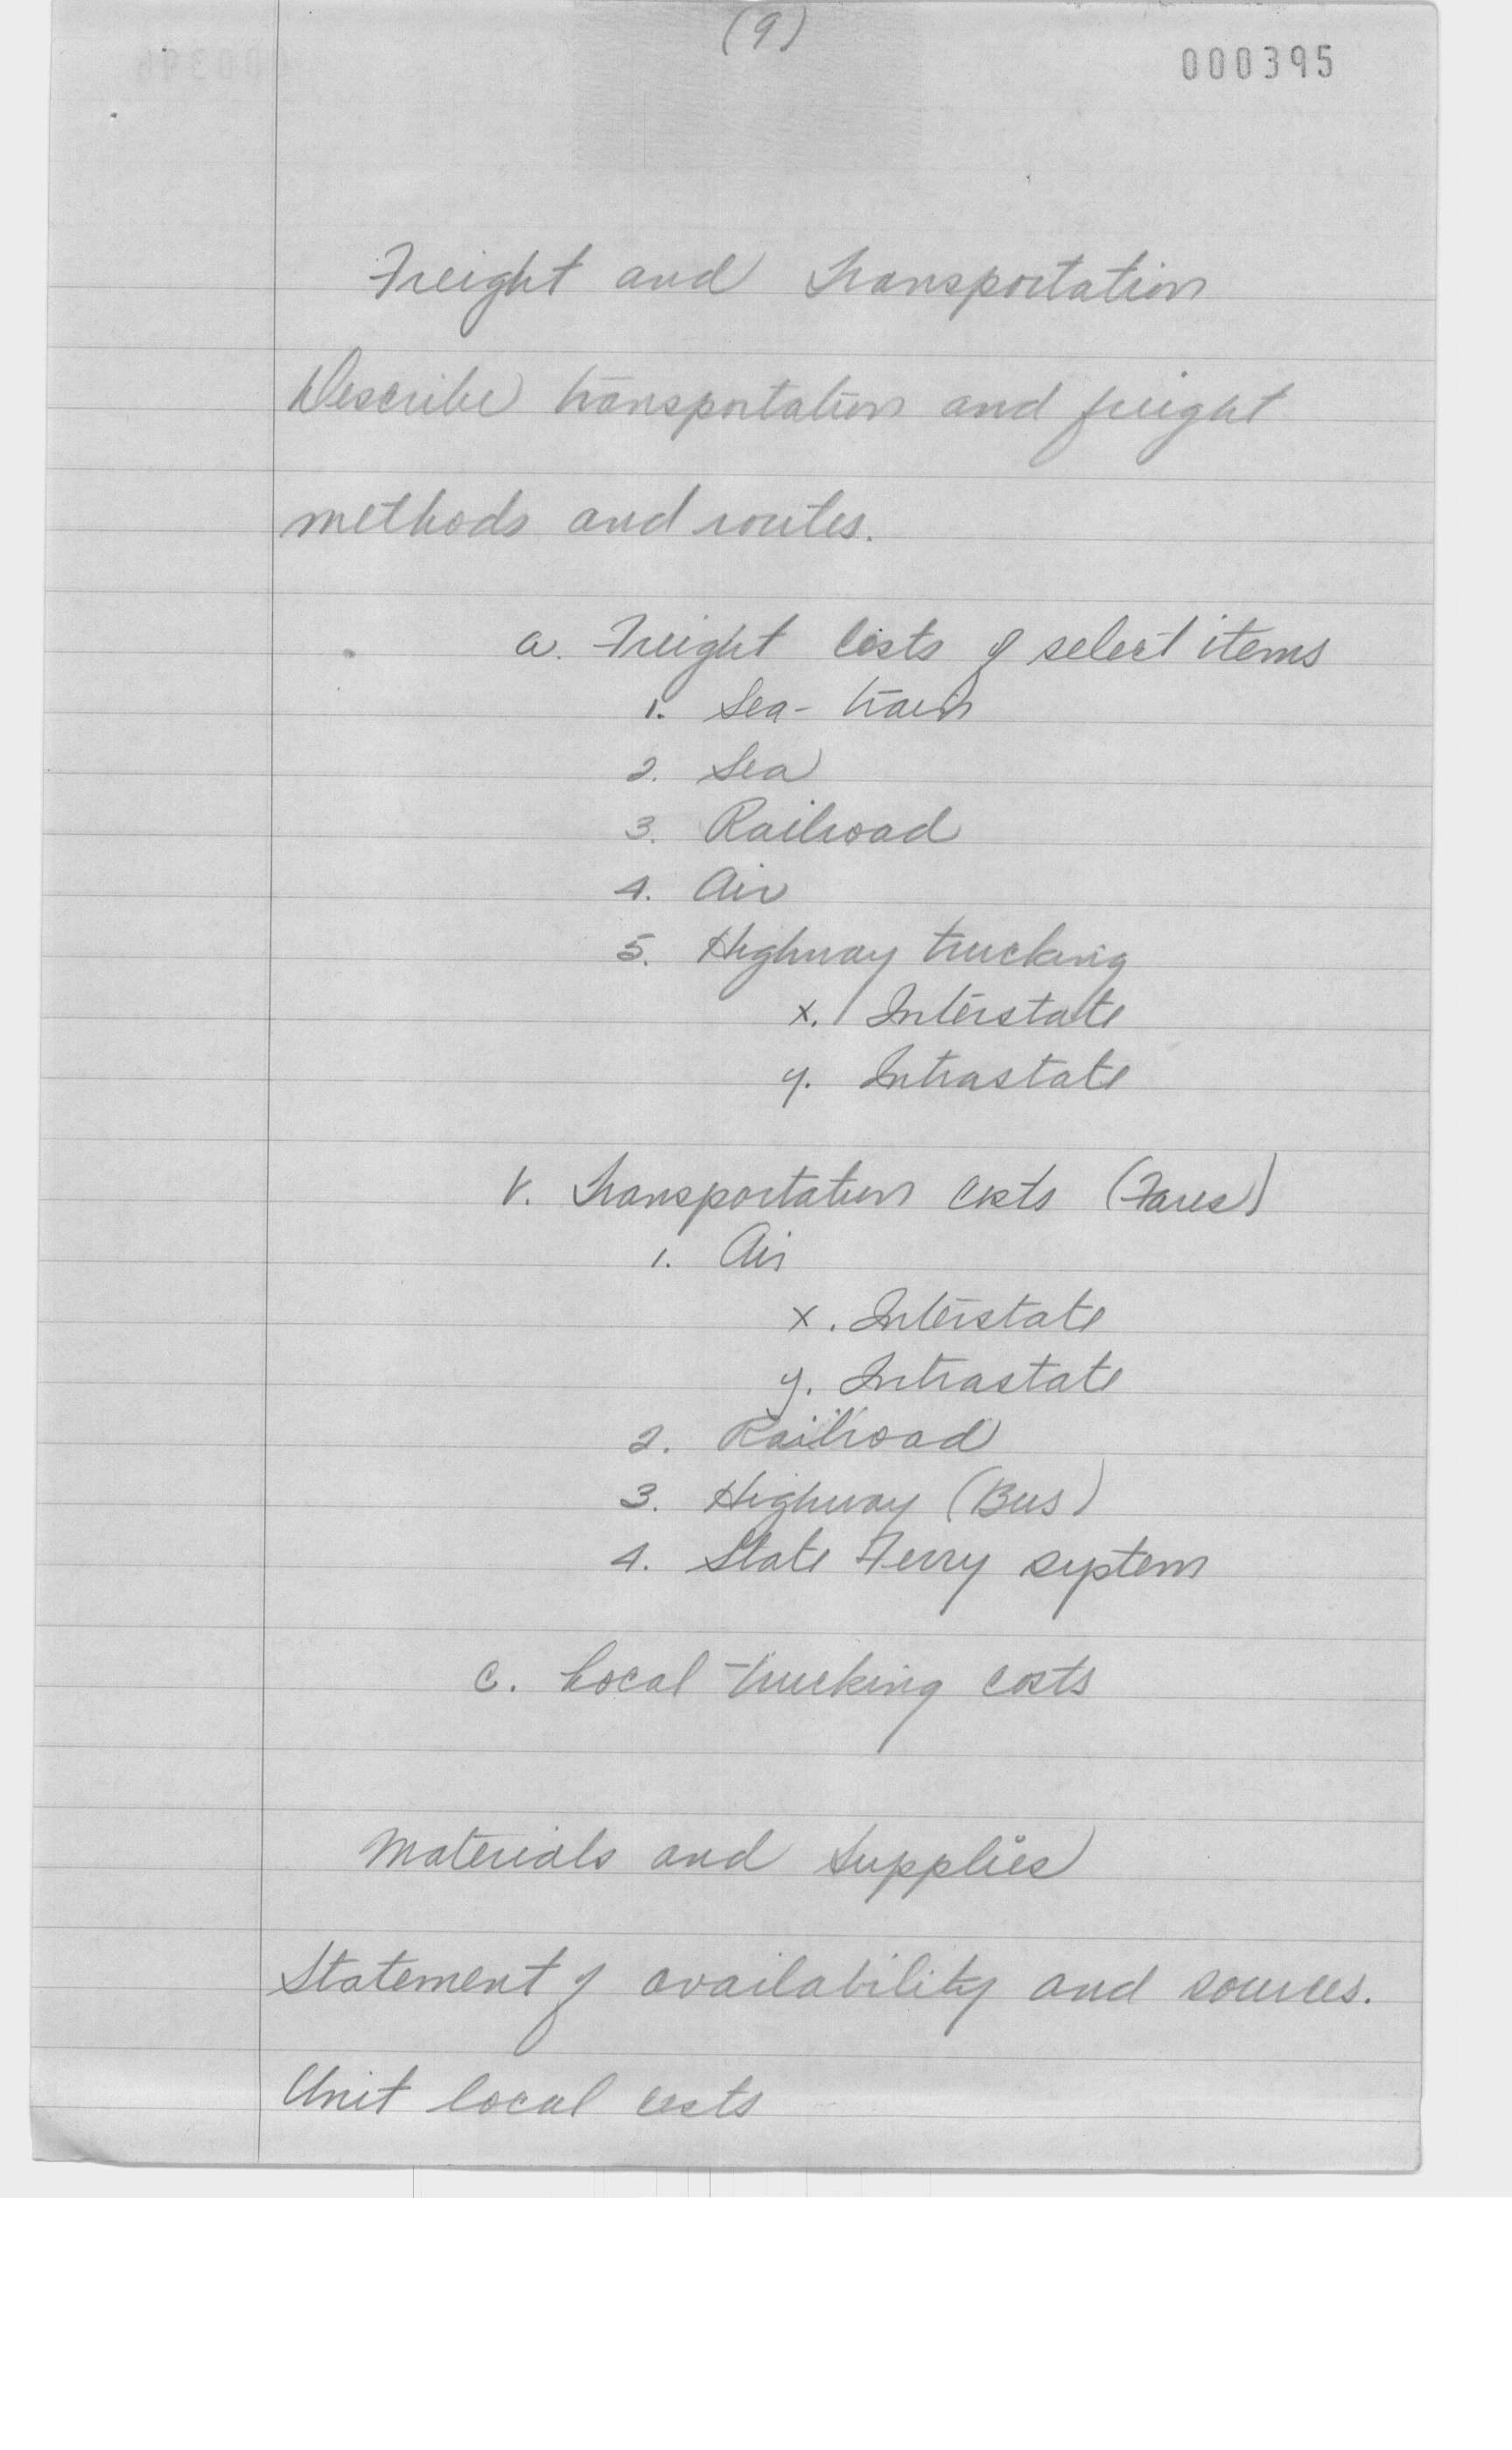 (9)
000395
Freight and Transportation
Describe transportation and freight
methods and routes.
a. Freight Costs of select items
1. Sea-train
2. Sea
3. Railroad
4. Air
5. Highway trucking
x. Interstate
y. Intrastate
b. Transportation Costs (Fares)
1. Air
x. Interstate
y. Intrastate
2. Railroad
3. Highway (Bus)
4. State Ferry system
c. Local trucking costs
Materials and Supplies
Statement of availability and sources.
Unit local costs